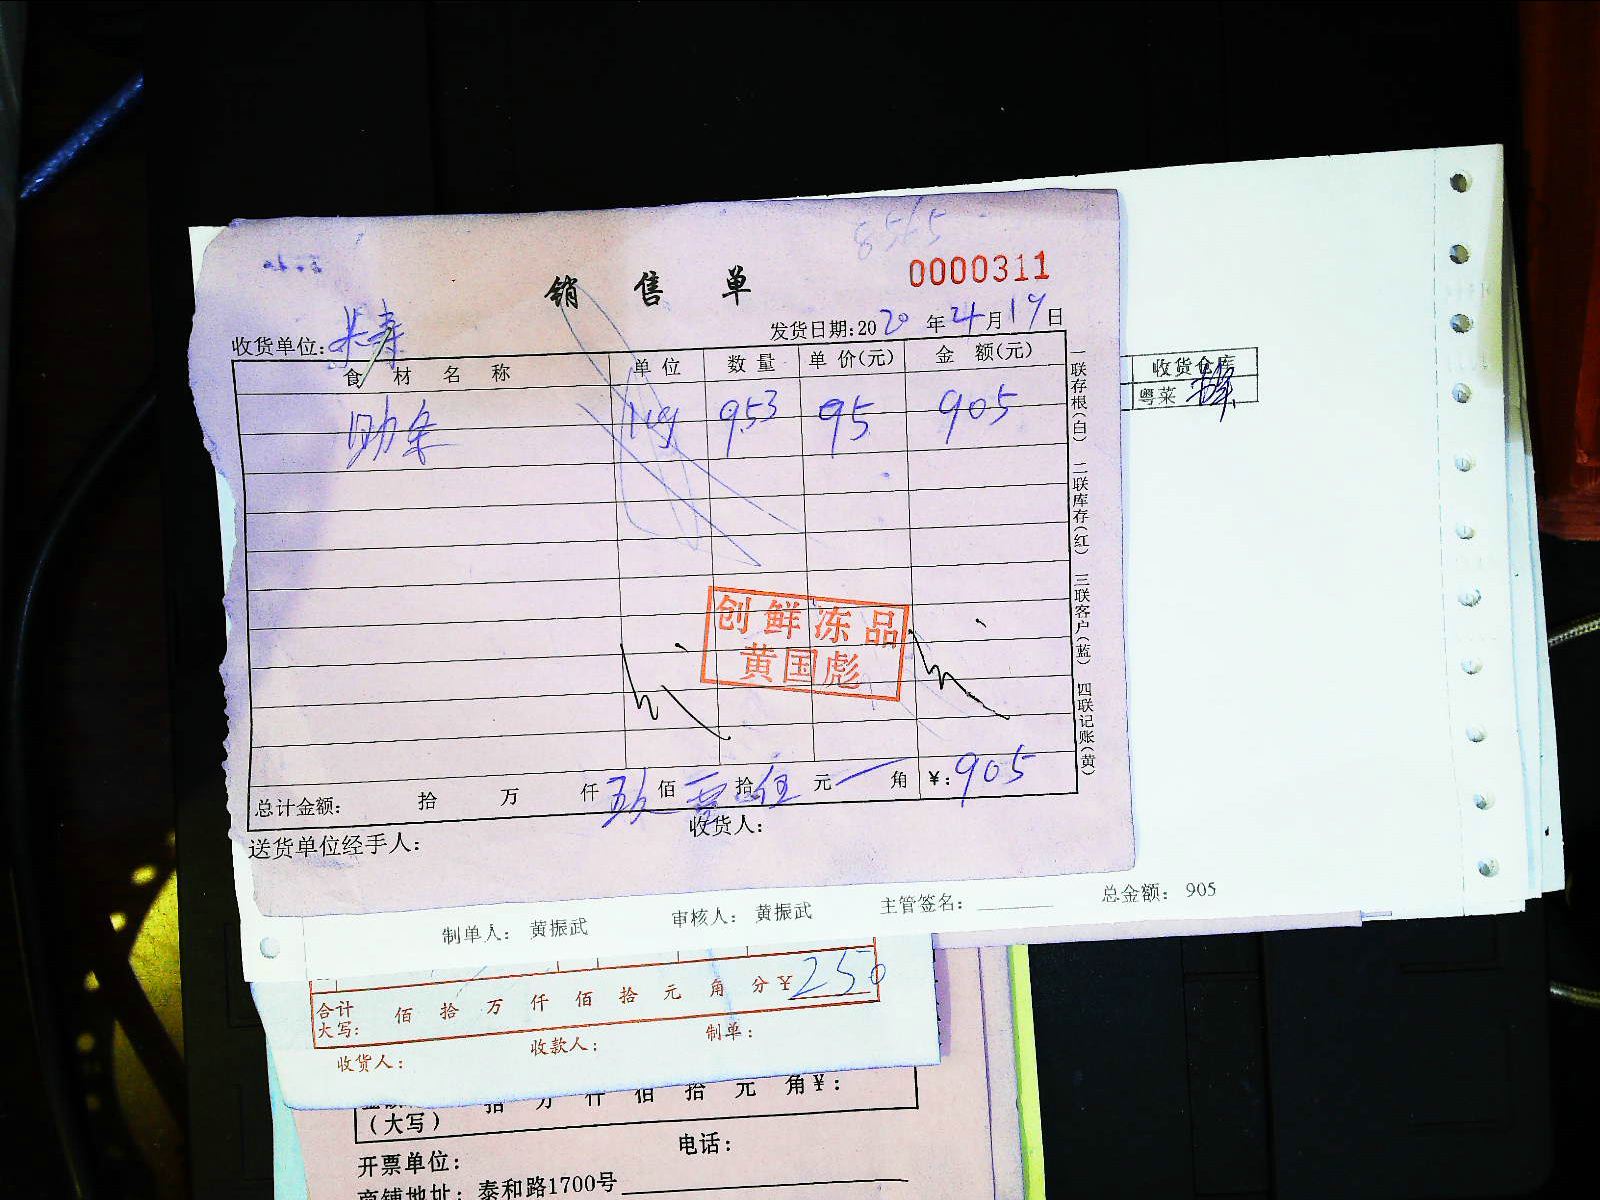 8565
0000311
销售单
收货单位:长寿
发货日期:2020年4月19日
食材名称 单位 数量 单价(元) 金额(元)
肋条 kg 953 95 905
一联存根(白) 二联库存(红) 三联客户(蓝) 四联记账(黄)
收货仓库
粤菜
创鲜冻品
黄国彪
总计金额: 拾 万 仟 玖佰零拾伍元 角 ¥:905
送货单位经手人: 收货人:
制单人: 黄振武 审核人: 黄振武 主管签名: 总金额: 905
合计大写: 佰 拾 万 仟 佰 拾 元 角 分 ¥250
收货人: 收款人: 制单:
拾 万 仟 佰 拾 元 角¥:
(大写)
开票单位: 电话:
商铺地址: 泰和路1700号